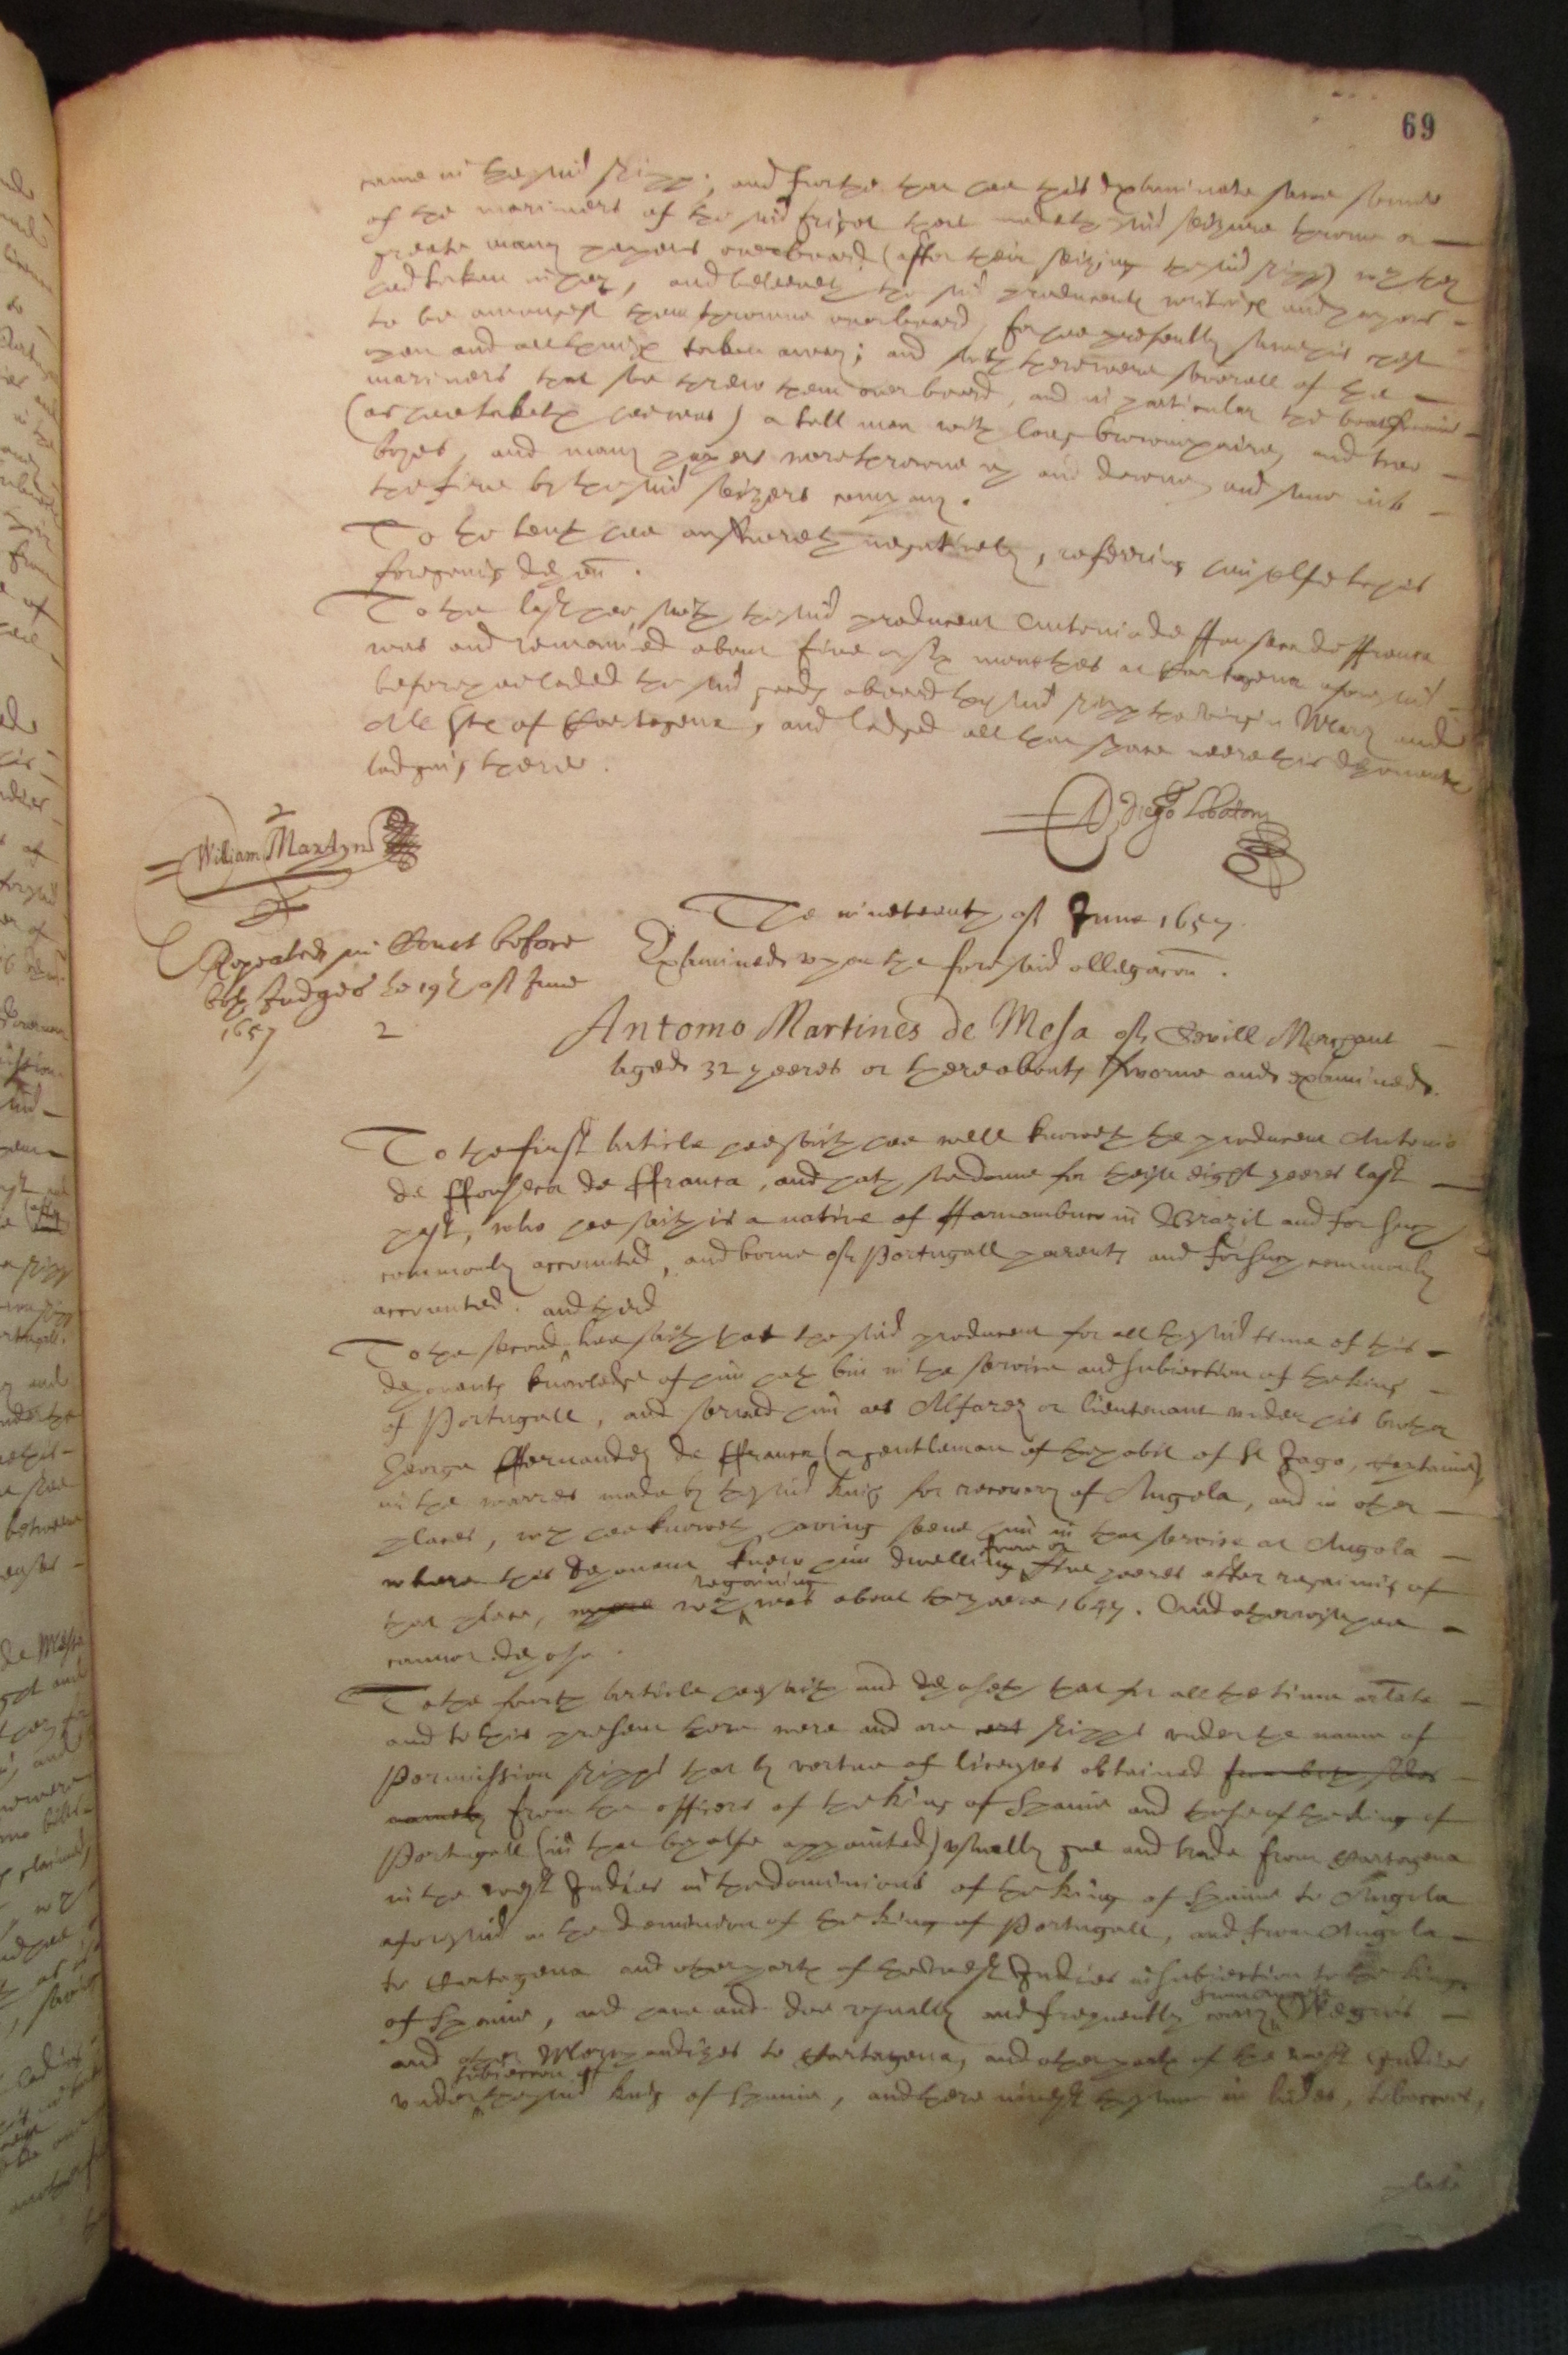 69
came in the said shipp; and further that hee this examinate sawe some
of the mariners of the said frigot that made the said seizure throwe a
greate many papers overboard (after their seizing the said shipp) wch they
had taken in her, and beleeveth the said producents writings and papers
to be amongst them throwne overboard, for hee presently sawe his chest
open and all things taken away; and saith there were severall of the
mariners that soe threw them over board, and in particular the boatswaine
(as hee taketh hee was) a tall man with long browne haire, and two
boyes, and many papers were throwne up and downe, and some into
the fire by the said seizers company.
To the tenth hee answereth negatively, referring himselfe to his
foregoing depon.
To the last hee saith the said producent Antonio de ffonseca de ffranca
was and remained about five or six moneths at Cartagena aforesaid
before hee laded the said goods aboard the said shipp the Virgin Mary and
of Cartagena, and lodged all that space neere this deponents
lodging there.
Diego Lobaton
2
William Martyn
Repeated in Court before
both Judges the 19th of June
1657
The nineteenth of June 1657.
Examined upon the foresaid allegacon.
2
Antonio Martines de Mesa of Sevill Merchant
aged 32 yeeres or thereabouts sworne and examined.
To the first article hee saith hee well knoweth the producent Antonio
de ffonseca de ffranca, and hath soe donne for theise eight yeeres last
past, who hee saith is a native of ffarnambuco in Brazil and for such
commonly accounted, and borne of Portugall parents and for such commonly
accounted.
and third
To the second hee saith that the said producent for all the said time of this
deponents knowledge of him hath bin in the service and subiection of the king
of Portugall, and served him as Alfarez or lieutenant under his brother
George ffernandez de ffranca (a gentleman of the abit of St Jago, Captaine)
in the warres made by the said king for recovery of Angola, and in other
places, wch hee knoweth having seene him in that service at Angola
where this deponent knew him dwelling fowre or five yeeres after regaining of
that place, wch regaining was about the yeere 1647. And otherwise hee
cannot depose.
To the fourth article hee saith and deposeth that for all the time arlate
and to this present there were and are shipps under the name of
Permission shipps that by vertue of licenses obtained from both sides
namely from the officers of the king of Spaine and those of the king of
Portugall (in that behalfe appointed) usually goe and trade from Cartagena
in the west Indies in the dominions of the king of Spaine to Angola
aforesaid in the dominion of the king of Portugall, and from Angola
to Cartagena and other parts of the west Indies in subiection to the king
of Spaine, and have and doe usually and frequently carry from Angola Negros
and other Merchandizes to Cartagena, and other parts of the west Indies
under subiection of the said king of Spaine, and there invest the same in hides, tobaccoes,
plate